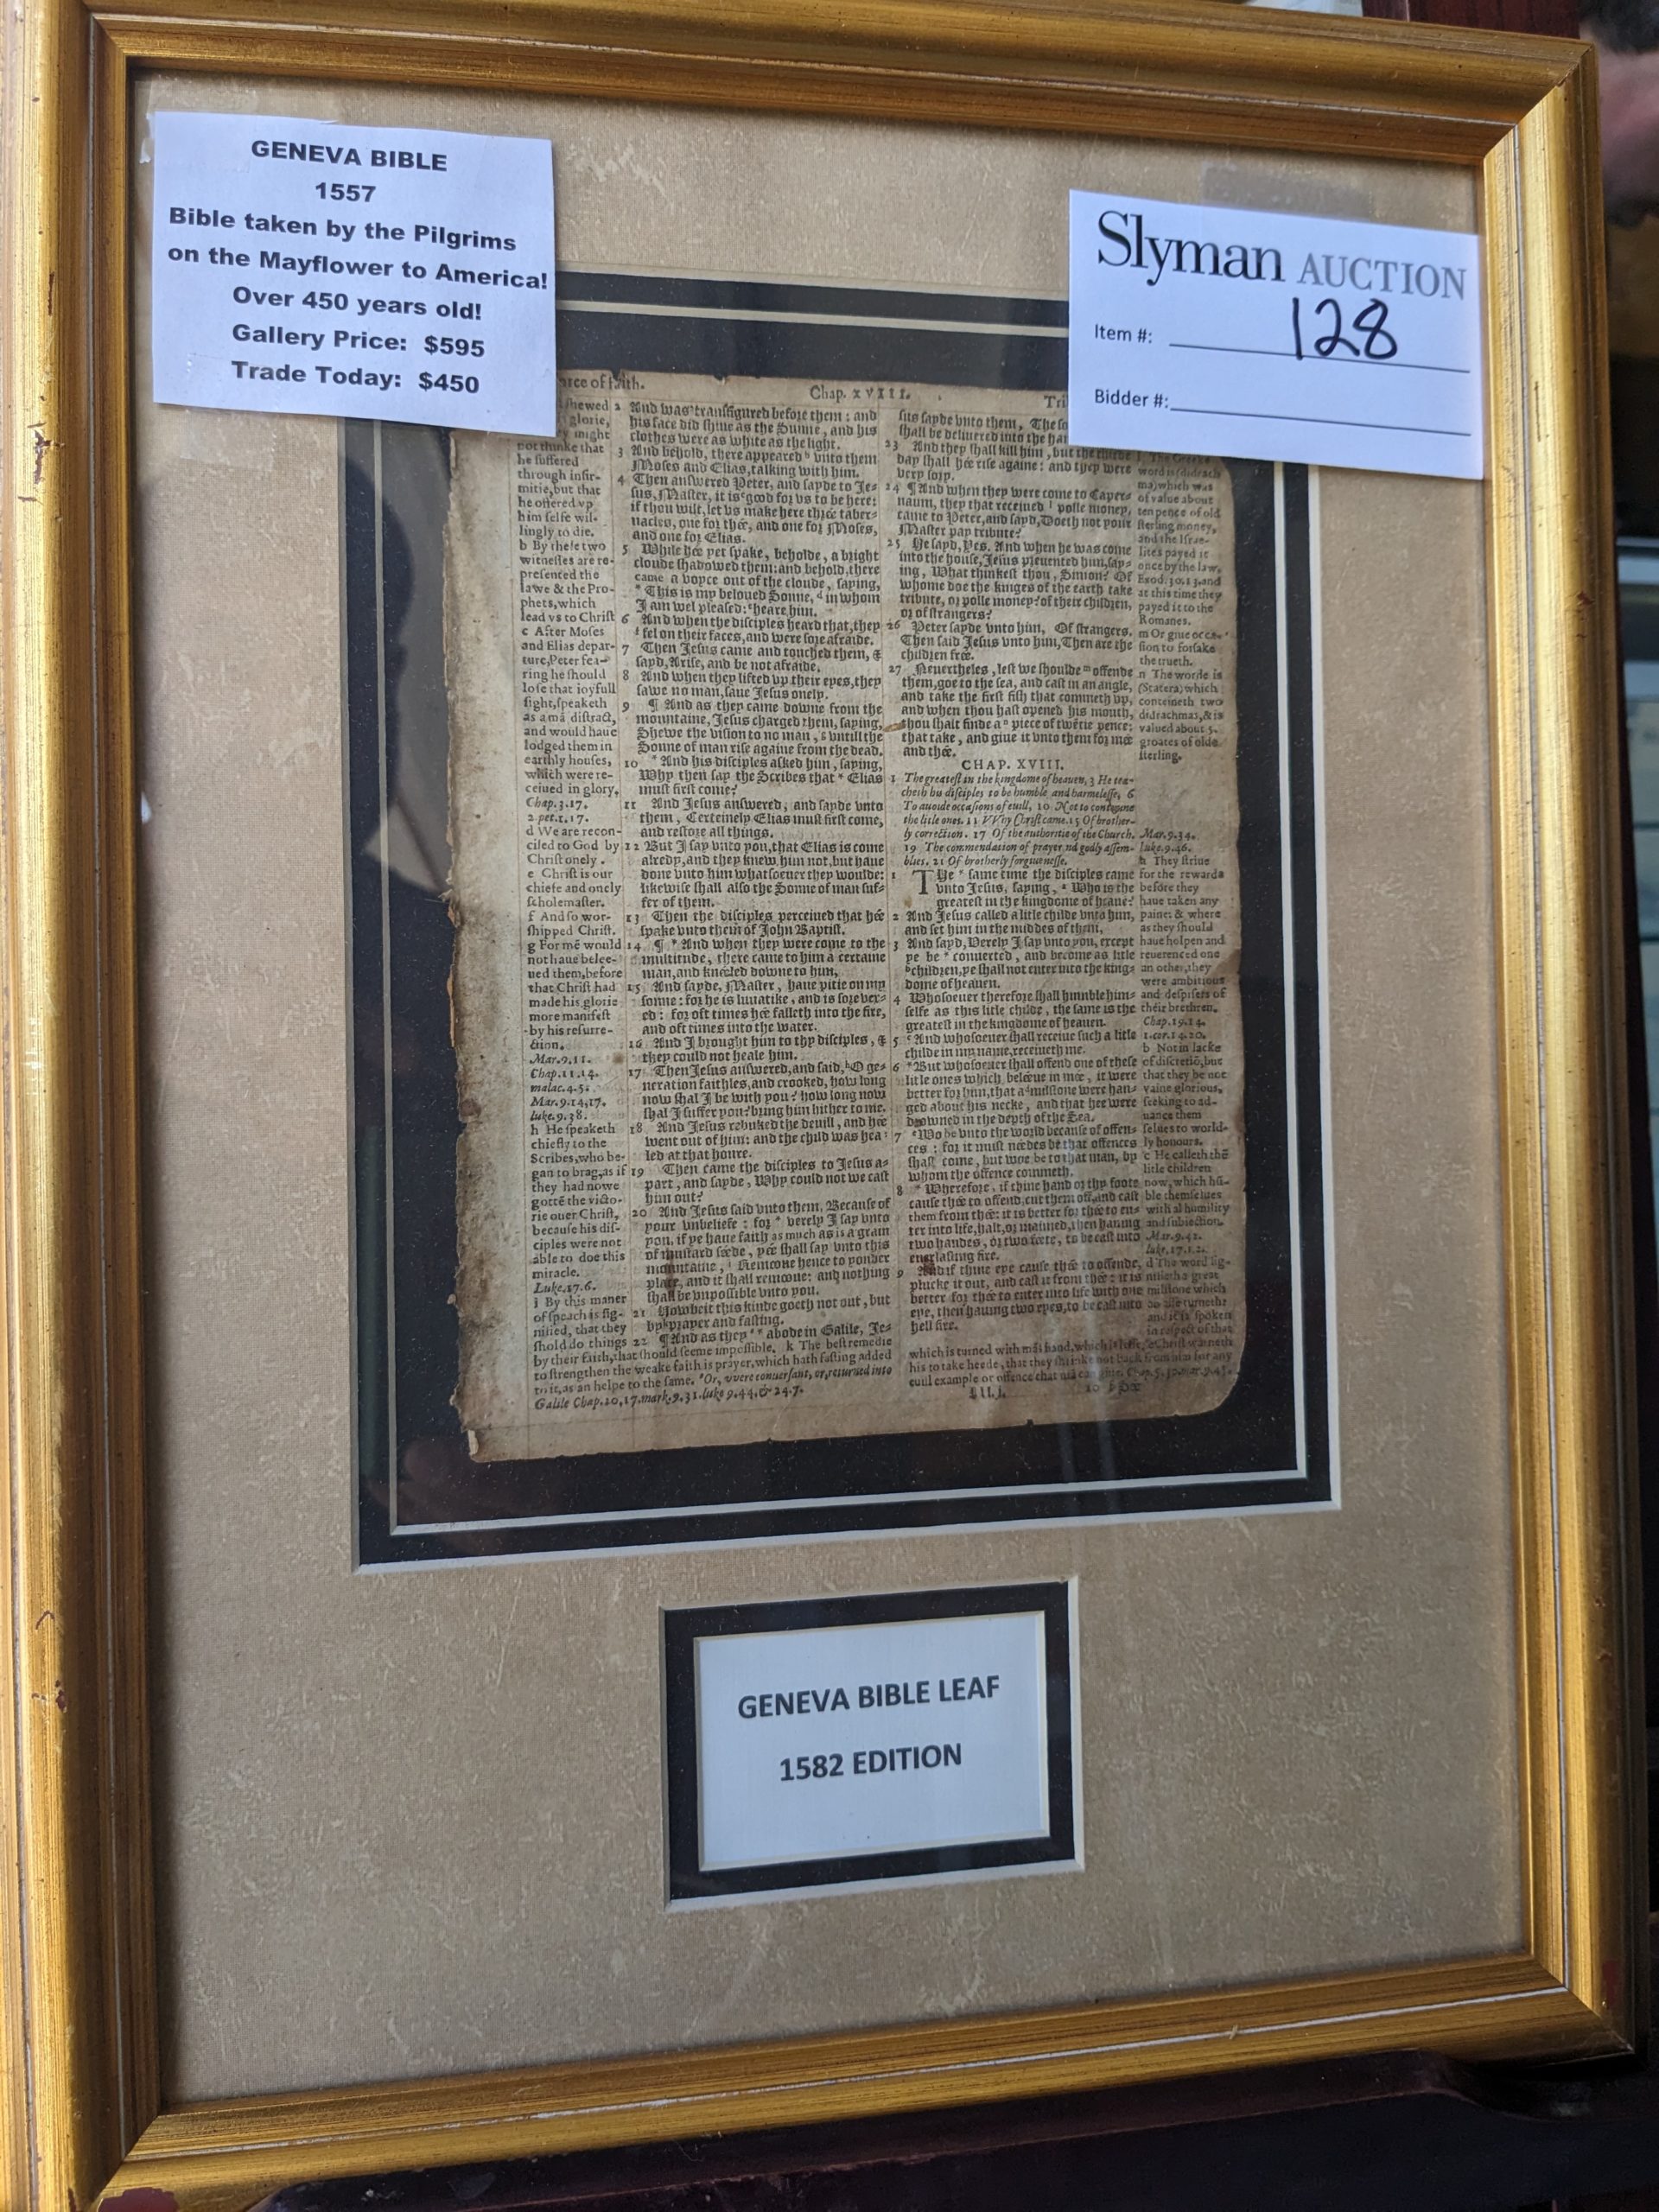 GENEVA BIBLE
1557
Bible taken by the Pilgrims
on the Mayflower to America!
Over 450 years old!
Gallery Price: $595
Trade Today: $450
Slyman AUCTION
Item #: 128
Bidder #:
of faith.
Chap. xviii.
Tri
shewed
glorie,
might
not thinke that
he suffered
through infir-
mitie, but that
he offered vp
him selfe wil-
lingly to die.
b By these two
witnesses are re-
presented the
lawe & the Pro-
phets, which
lead vs to Christ
c After Moses
and Elias depar-
ture, Peter fea-
ring he should
lose that ioyfull
sight, speaketh
as a mã distract,
and would haue
lodged them in
earthly houses,
which were re-
ceiued in glory.
Chap.3.17.
2.pet.1.17.
d We are recon-
ciled to God by
Christ onely.
e Christ is our
chiefe and onely
scholemaster.
f And so wor-
shipped Christ.
g For mē would
not haue belee-
ued them, before
that Christ had
made his glorie
more manifest
by his resurre-
ction.
Mar.9.11.
Chap.11.14.
malac.4.5.
Mar.9.14,17.
luke.9.38.
h He speaketh
chiefly to the
Scribes, who be-
gan to brag, as if
they had nowe
gottē the victo-
rie ouer Christ,
because his dis-
ciples were not
able to doe this
miracle.
Luke.17.6.
i By this maner
of speach is sig-
nified, that they
shold do things
by their faith, that should seeme impossible. k The best remedie
to strengthen the weake faith is prayer, which hath fasting added
to it, as an helpe to the same. *Or, vvere conuersant, or, returned into
Galile Chap.20,17.mark.9.31.luke 9.44.& 24.7.
2 And was transfigured before them: and
his face did shine as the Sunne, and his
clothes were as white as the light.
3 And behold, there appeared b vnto them
Moses and Elias, talking with him.
4 Then answered Peter, and sayde to Je-
sus, Master, it is c good for vs to be here:
if thou wilt, let vs make here thrée taber-
nacles, one for thée, and one for Moses,
and one for Elias.
5 While hée yet spake, beholde, a bright
cloude shadowed them: and behold, there
came a voyce out of the cloude, saying,
* This is my beloued Sonne, d in whom
I am wel pleased: e heare him.
6 And when the disciples heard that, they
f fel on their faces, and were sore afraide.
7 Then Jesus came and touched them, &
sayd, Arise, and be not afraide.
8 And when they lifted vp their eyes, they
sawe no man, saue Jesus onely.
9 ¶ And as they came downe from the
mountaine, Jesus charged them, saying,
Shewe the vision to no man, g vntill the
Sonne of man rise againe from the dead.
10 * And his disciples asked him, saying,
Why then say the Scribes that * Elias
must first come?
11 And Jesus answered, and sayde vnto
them, Certeinely Elias must first come,
and restore all things.
12 But I say vnto you, that Elias is come
alredy, and they knew him not, but haue
done vnto him whatsoeuer they woulde:
likewise shall also the Sonne of man suf-
fer of them.
13 Then the disciples perceiued that hée
spake vnto them of John Baptist.
14 ¶ * And when they were come to the
multitude, there came to him a certaine
man, and knéeled downe to him,
15 And sayde, Master, haue pitie on my
sonne: for he is lunatike, and is sore ver-
ed: for oft times hée falleth into the fire,
and oft times into the water.
16 And I brought him to thy disciples, &
they could not heale him.
17 Then Jesus answered, and said, h O ge-
neration faithles, and crooked, how long
now shal I be with you? how long now
shal I suffer you? bring him hither to me.
18 And Jesus rebuked the deuill, and hée
went out of him: and the child was hea-
led at that houre.
19 Then came the disciples to Jesus a-
part, and sayde, Why could not we cast
him out?
20 And Jesus said vnto them, Because of
your vnbeliefe: for * verely I say vnto
you, if ye haue faith as much as is a grain
of mustard séede, yée shall say vnto this
mountaine, i Remoue hence to yonder
place, and it shall remoue: and nothing
shall be vnpossible vnto you.
21 Howbeit this kinde goeth not out, but
by k prayer and fasting.
22 ¶ And as they * abode in Galile, Je-
sus sayde vnto them, The
shall be deliuered into the
23 And they shall kill him, but the
day shall hée rise againe: and they were
very sory.
24 ¶ And when they were come to Caper-
naum, they that receiued l polle money,
came to Peter, and sayd, Doeth not your
Master pay tribute?
25 He sayd, Yes. And when he was come
into the house, Jesus preuented him, say-
ing, What thinkest thou, Simon? Of
whome doe the kinges of the earth take
tribute, or polle money? of their children,
or of strangers?
26 Peter sayde vnto him, Of strangers.
Then said Jesus vnto him, Then are the
children frée.
27 Neuertheles, lest we shoulde m offende
them, goe to the sea, and cast in an angle,
and take the first fish that commeth vp,
and when thou hast opened his mouth,
thou shalt finde a n piece of twētie pence:
that take, and giue it vnto them for mée
and thée.
CHAP. XVIII.
1 The greatest in the kingdome of heauen, 3 He tea-
cheth his disciples to be humble and harmelesse, 6
To auoide occasions of euill, 10 Not to contemne
the little ones. 11 VVhy Christ came. 15 Of brother-
ly correction. 17 Of the authoritie of the Church.
19 The commendation of prayer nd godly assem-
blies. 21 Of brotherly forgiuenesse.
1 The * same time the disciples came
vnto Jesus, saying, a Who is the
greatest in the kingdome of heauē?
2 And Jesus called a litle childe vnto him,
and set him in the middes of them,
3 And sayd, Verely I say vnto you, except
ye be * conuerted, and become as litle
b children, ye shall not enter into the king-
dome of heauen.
4 Whosoeuer therefore shall humble him-
selfe as this litle childe, the same is the
greatest in the kingdome of heauen.
5 c And whosoeuer shall receiue such a litle
childe in my name, receiueth me.
6 * But whosoeuer shall offend one of these
little ones which beléeue in mée, it were
better for him, that a d milstone were han-
ged about his necke, and that hée were
drowned in the depth of the Sea.
7 Wo be vnto the world because of offen-
ces: for it must néedes be that offences
shall come, but woe be to that man, by
whom the offence commeth.
8 * Wherefore, if thine hand or thy foote
cause thée to offend, cut them off, and cast
them from thée: it is better for thée to en-
ter into life, halt, or maimed, then hauing
two handes, or two féete, to be cast into
euerlasting fire.
9 And if thine eye cause thée to offende,
plucke it out, and cast it from thée: it is
better for thée to enter into life with one
eye, then hauing two eyes, to be cast into
hell fire.
The Greeke
word is (didrach
ma) which was
of value about
ten pence of old
sterling money,
and the Israe-
lites payed it
once by the law,
Exod.30.13.and
at this time they
payed it to the
Romanes.
m Or giue occa-
sion to forsake
the trueth.
n The worde is
(Statera) which
conteineth two
didrachmas, & is
valued about 5.
groates of olde
sterling.
Mar.9.34.
luke.9.46.
a They striue
for the rewarde
before they
haue taken any
paine: & where
as they should
haue holpen and
reuerenced one
an other, they
were ambitious
and despisers of
their brethren.
Chap.19.14.
1.cor.14.20.
b Not in lacke
of discretiō, but
that they be not
vaine glorious,
seeking to ad-
uance them
selues to world-
ly honours.
c He calleth thē
litle children
now, which hū-
ble themselues
with al humility
and subiection.
Mar.9.42.
luke.17.1,2.
d The word sig-
nifieth a great
milstone which
an asse turneth:
and it is spoken
in respect of that
which is turned with mās hand, which is lesse. Christ warneth
his to take heede, that they shrinke not back from him for any
euill example or offence that mā can giue. Chap.5.30.mar.9.45.
GENEVA BIBLE LEAF
1582 EDITION